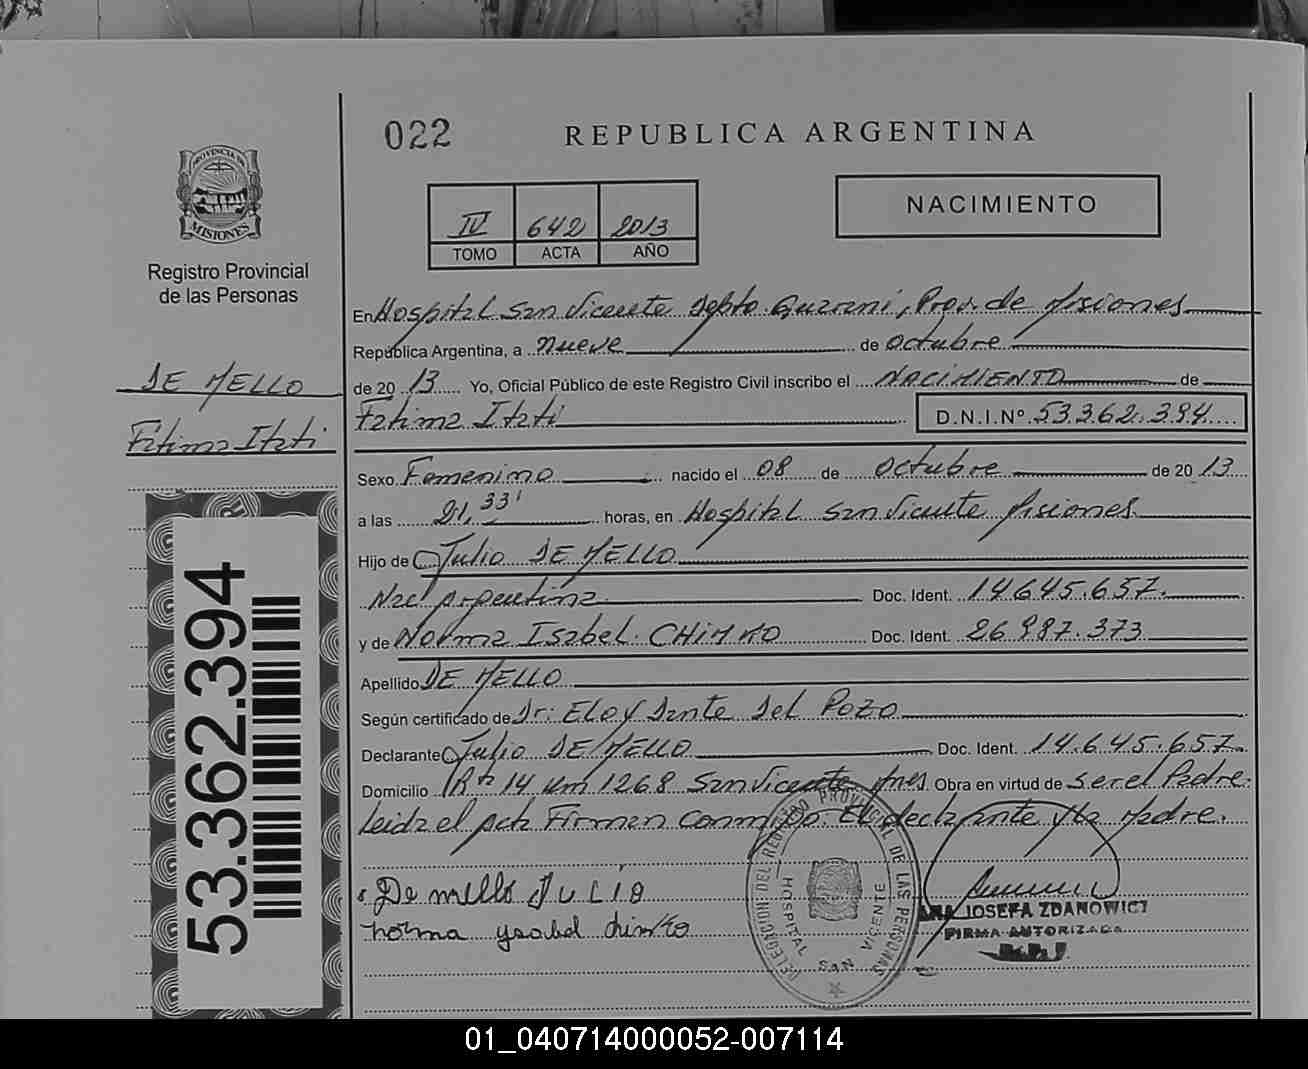 022
REPUBLICA ARGENTINA
PROVINCIA DE
MISIONES
Registro Provincial
de las Personas
IV 642 2013
TOMO ACTA AÑO
NACIMIENTO
DE MELLO
Fatima Itati
53.362.394
En Hospital San Vicente Depto. Guarani, Prov. de Misiones
Republica Argentina, a nueve de octubre
de 2013 Yo, Oficial Público de este Registro Civil inscribo el NACIMIENTO de
Fatima Itati D.N.I.Nº 53.362.394
Sexo Femenino nacido el 08 de octubre de 2013
a las 21,33' horas, en Hospital San Vicente Misiones
Hijo de Julio DE MELLO
Nac Argentina Doc. Ident. 14.645.657.
y de Norma Isabel CHIMKO Doc. Ident. 26.987.373
Apellido DE MELLO
Según certificado de Dr: Eloy Dante Del Pozo
Declarante Julio DE MELLO Doc. Ident. 14.645.657.
Domicilio Rta 14 Km 1268 San Vicente Mnes Obra en virtud de ser el Padre.
Leida el acta Firman conmigo. El declarante y la Madre.
De mello JULIO
norma ysabel chimko
DELEGACION DEL REGISTRO PROVINCIAL DE LAS PERSONAS
HOSPITAL SAN VICENTE
ANA JOSEFA ZDANOWICZ
FIRMA AUTORIZADA
01_040714000052-007114